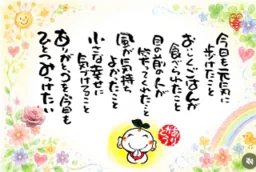 今日も元気に
歩けたこと
おいしくごはんが
食べられたこと
目の前の人が
笑ってくれたこと
風が気持ち
よかったこと
小さな幸せに
気づけること
ありがとうを今日も
ひとつみつけたい
ありがとう